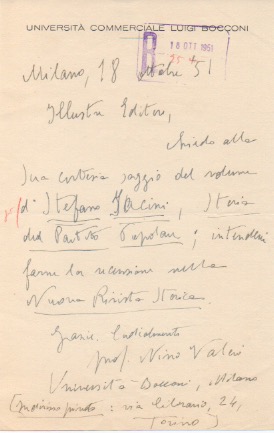 UNIVERSITÀ COMMERCIALE LUIGI BOCCONI
R 18 OTT 1951
Milano, 18 ottobre 51
Illustre Editore,
chiedo alla
Sua cortesia saggio del volume
di Stefano Jacini, Storia
del Partito Popolare; intenderei
farne la recensione nella
Nuova Rivista Storica.
Grazie. Cordialmente
prof. Nino Valeri
Università Bocconi, Milano
(indirizzo privato: via 24,
Torino)